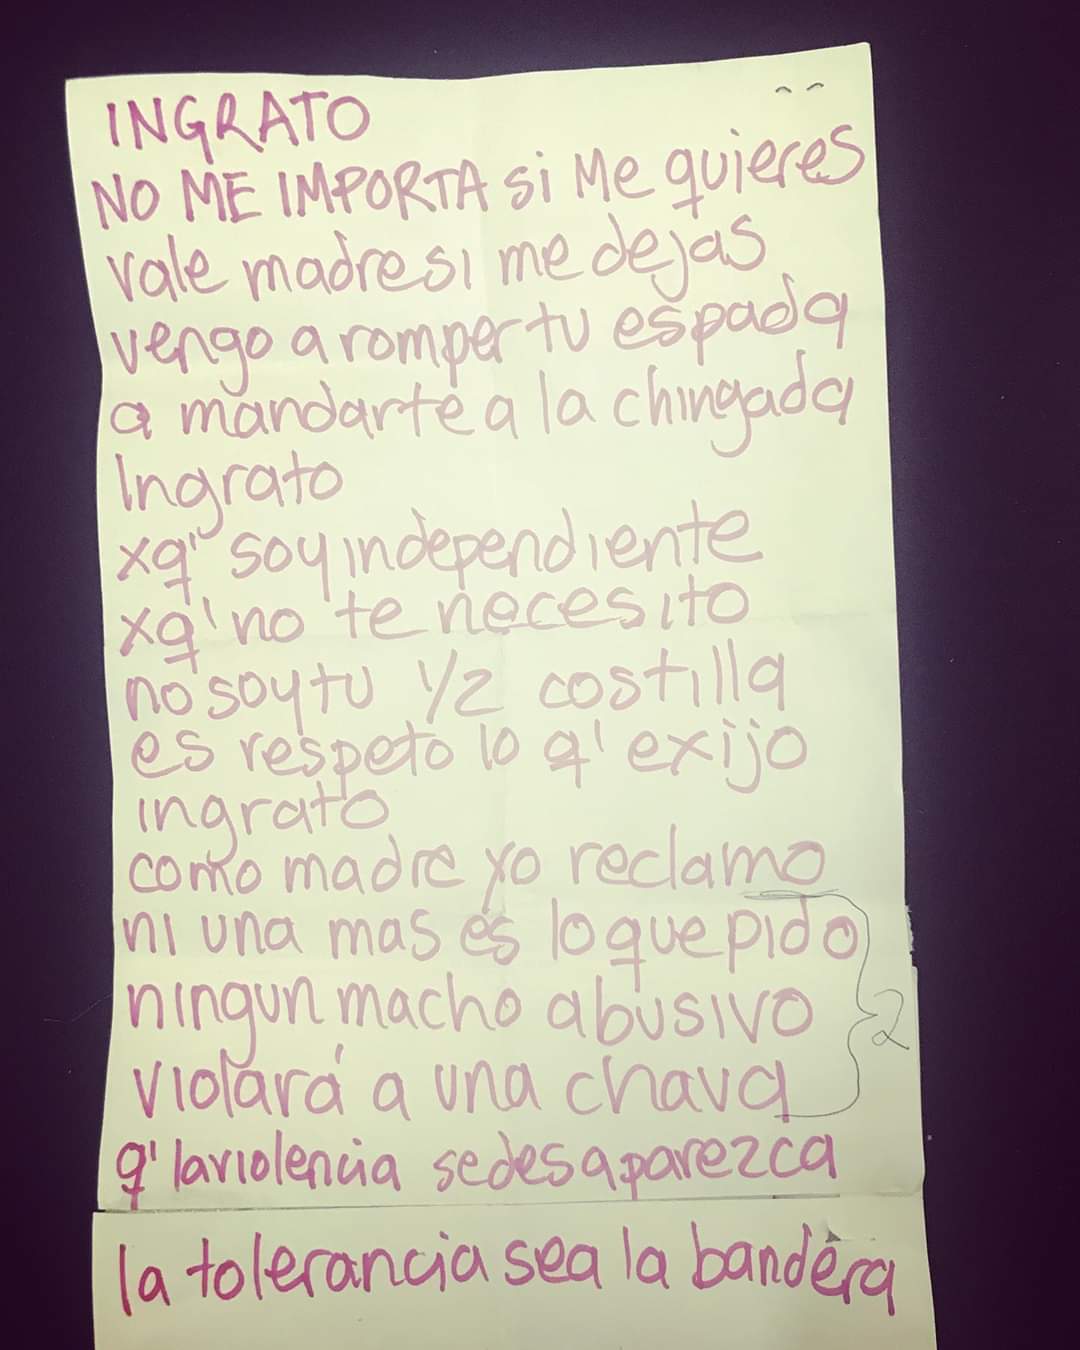 INGRATO
NO ME IMPORTA si Me quieres
vale madre si me dejas
vengo a romper tu espada
a mandarte a la chingada
Ingrato
xq' soy independiente
xq' no te necesito
no soy tu 1/2 costilla
es respeto lo q' exijo
ingrato
como madre yo reclamo
ni una mas es lo que pido
ningun macho abusivo
2
violará a una chava
q' la violencia se desaparezca
la tolerancia sea la bandera